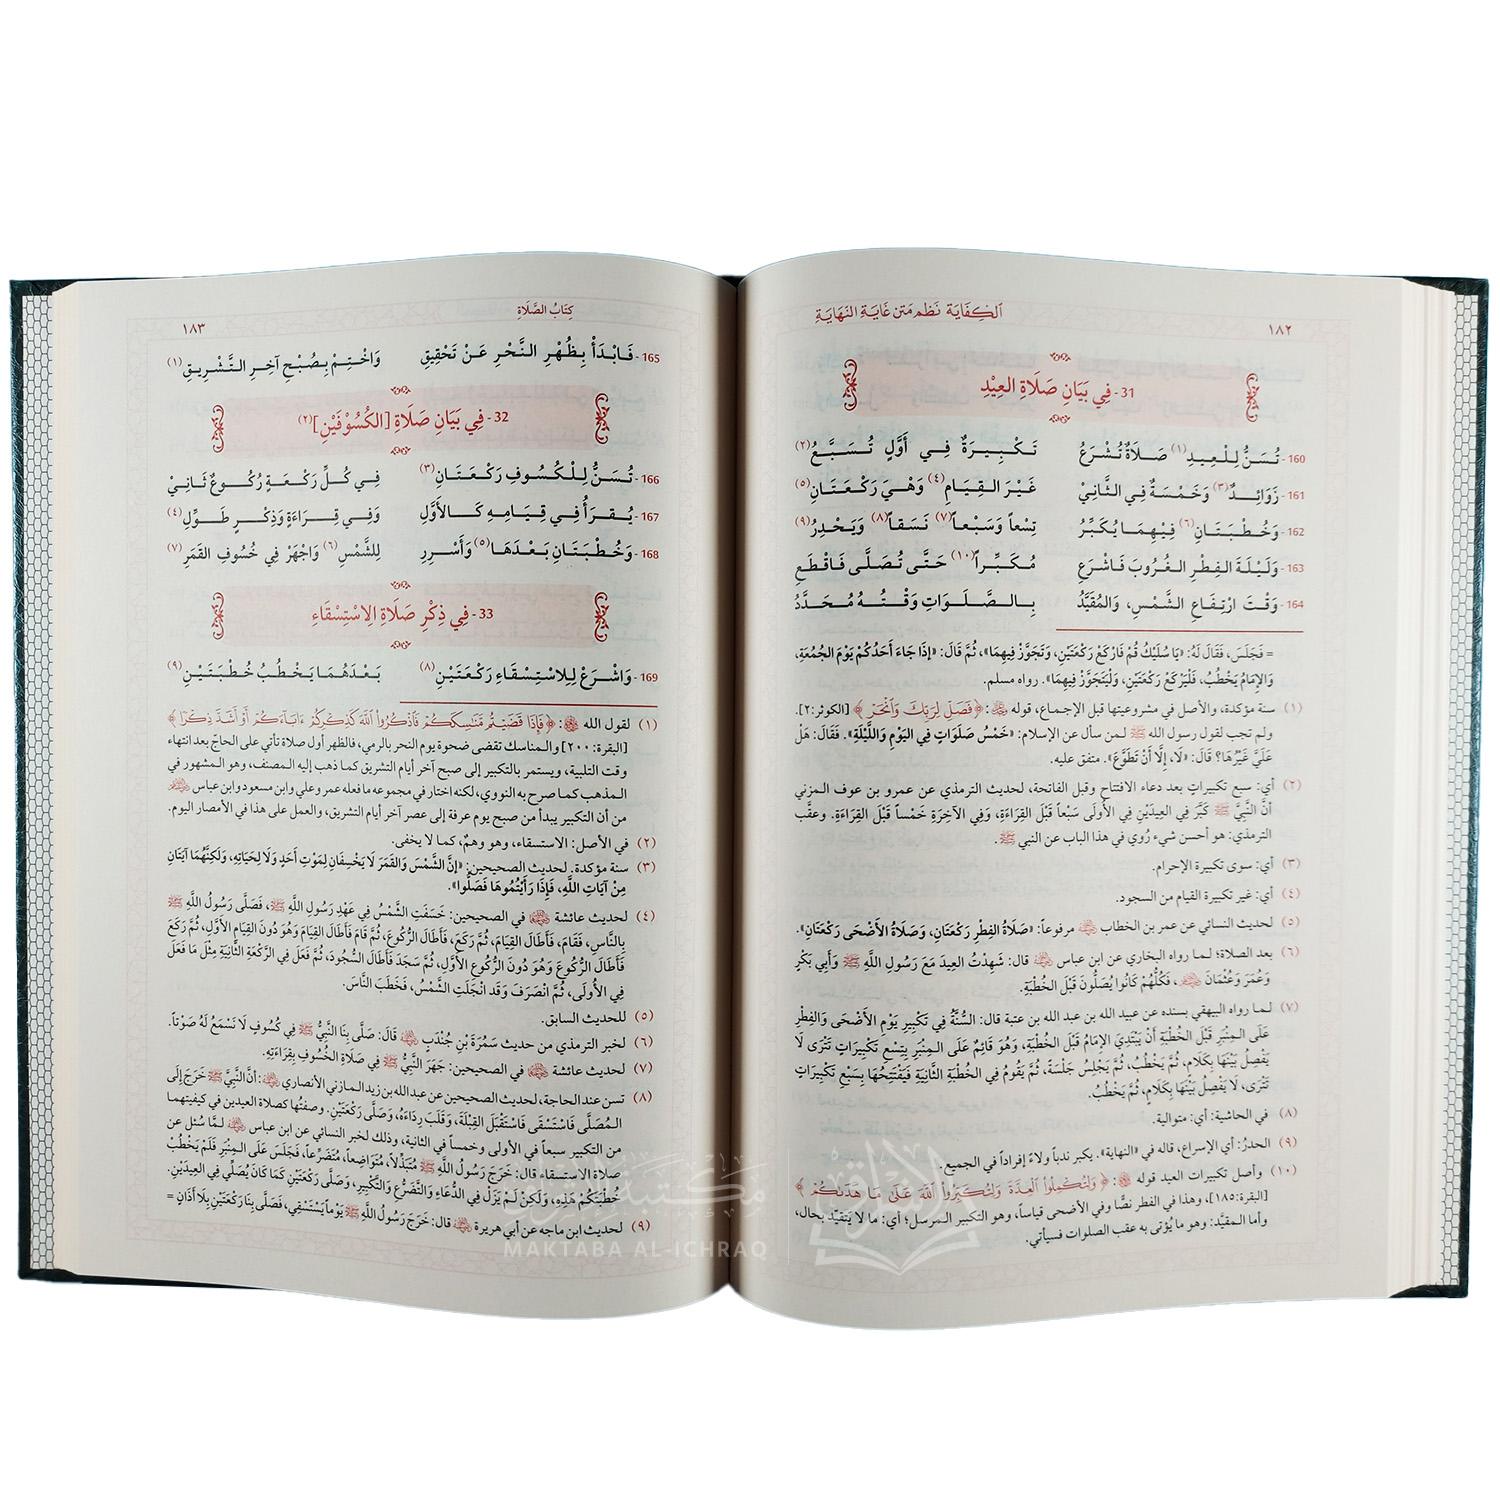 ١٨٢
الكفاية نظم متن غاية النهاية
31- فِي بَيَانِ صَلَاةِ العِيْدِ
160- تُسَنُّ لِلْعِيدِ(١) صَلَاةٌ تُشْرَعُ تَكْبِيرَةٌ فِي أَوَّلٍ تُسَبَّعُ(٢)
161- زَوَائِدٌ(٣) وَخَمْسَةٌ فِي الثَّانِيْ غَيْرَ القِيَامِ(٤) وَهْيَ رَكْعَتَانِ(٥)
162- وَخُطْبَتَانِ(٦) فِيْهِمَا يُكَبِّرُ تِسْعاً وَسَبْعاً(٧) نَسَقاً(٨) وَيَحْدِرُ(٩)
163- وَلَيْلَةَ الفِطْرِ الغُرُوبَ فَاشْرَعِ مُكَبِّراً(١٠) حَتَّى تُصَلَّى فَاقْطَعِ
164- وَقْتَ ارْتِفَاعِ الشَّمْسِ، وَالمُقَيَّدُ بِالصَّلَوَاتِ وَقْتُهُ مُحَدَّدُ
= فَجَلَسَ، فَقَالَ لَهُ: «يَا سُلَيْكُ قُمْ فَارْكَعْ رَكْعَتَيْنِ، وَتَجَوَّزْ فِيهِمَا»، ثُمَّ قَالَ: «إِذَا جَاءَ أَحَدُكُمْ يَوْمَ الجُمُعَةِ،
وَالإِمَامُ يَخْطُبُ، فَلْيَرْكَعْ رَكْعَتَيْنِ، وَلْيَتَجَوَّزْ فِيهِمَا». رواه مسلم.
(١) سنة مؤكدة، والأصل في مشروعيتها قبل الإجماع، قوله ﷻ: ﴿فَصَلِّ لِرَبِّكَ وَانْحَرْ﴾ [الكوثر:٢].
ولم تجب لقول رسول الله ﷺ لمن سأل عن الإسلام: «خَمْسُ صَلَوَاتٍ فِي اليَوْمِ وَاللَّيْلَةِ». فَقَالَ: هَلْ
عَلَيَّ غَيْرُهَا؟ قَالَ: «لَا، إِلَّا أَنْ تَطَوَّعَ». متفق عليه.
(٢) أي: سبع تكبيراتٍ بعد دعاء الافتتاح وقبل الفاتحة، لحديث الترمذي عن عمرو بن عوف المزني
أَنَّ النَّبِيَّ ﷺ كَبَّرَ فِي العِيدَيْنِ فِي الأُولَى سَبْعاً قَبْلَ القِرَاءَةِ، وَفِي الآخِرَةِ خَمْساً قَبْلَ القِرَاءَةِ. وعقَّب
الترمذي: هو أحسن شيء رُوي في هذا الباب عن النبي ﷺ.
(٣) أي: سوى تكبيرة الإحرام.
(٤) أي: غير تكبيرة القيام من السجود.
(٥) لحديث النسائي عن عمر بن الخطاب مرفوعاً: «صَلَاةُ الفِطْرِ رَكْعَتَانِ، وَصَلَاةُ الأَضْحَى رَكْعَتَانِ».
(٦) بعد الصلاة؛ لما رواه البخاري عن ابن عباس قال: شَهِدْتُ العِيدَ مَعَ رَسُولِ اللَّهِ ﷺ وَأَبِي بَكْرٍ
وَعُمَرَ وَعُثْمَانَ، فَكُلُّهُمْ كَانُوا يُصَلُّونَ قَبْلَ الخُطْبَةِ.
(٧) لما رواه البيهقي بسنده عن عبيد الله بن عبد الله بن عتبة قال: السُّنَّةُ فِي تَكْبِيرِ يَوْمِ الأَضْحَى وَالفِطْرِ
عَلَى المِنْبَرِ قَبْلَ الخُطْبَةِ أَنْ يَبْتَدِئَ الإِمَامُ قَبْلَ الخُطْبَةِ، وَهُوَ قَائِمٌ عَلَى المِنْبَرِ بِتِسْعِ تَكْبِيرَاتٍ تَتْرَى لَا
يَفْصِلُ بَيْنَهَا بِكَلَامٍ، ثُمَّ يَخْطُبُ، ثُمَّ يَجْلِسُ جَلْسَةً، ثُمَّ يَقُومُ فِي الخُطْبَةِ الثَّانِيَةِ فَيَفْتَتِحُهَا بِسَبْعِ تَكْبِيرَاتٍ
تَتْرَى، لَا يَفْصِلُ بَيْنَهَا بِكَلَامٍ، ثُمَّ يَخْطُبُ.
(٨) في الحاشية: أي: متوالية.
(٩) الحدرُ: أي الإسراع، قاله في «النهاية». يكبر ندباً ولاءً إفراداً في الجميع.
(١٠) وأصل تكبيرات العيد قوله ﷻ: ﴿وَلِتُكْمِلُوا الْعِدَّةَ وَلِتُكَبِّرُوا اللَّهَ عَلَى مَا هَدَاكُمْ﴾
[البقرة:١٨٥]، وهذا في الفطر نصًّا وفي الأضحى قياساً، وهو التكبير المرسل؛ أي: ما لا يَتقيّد بحال،
وأما المقيَّد: وهو ما يُؤتى به عقب الصلوات فسيأتي.
كِتَابُ الصَّلَاةِ
١٨٣
165- فَابْدَأْ بِظُهْرِ النَّحْرِ عَنْ تَحْقِيقِ وَاخْتِمْ بِصُبْحِ آخِرِ التَّشْرِيقِ(١)
32- فِي بَيَانِ صَلَاةِ [الكُسُوْفَيْنِ](٢)
166- تُسَنُّ لِلْكُسُوفِ رَكْعَتَانِ(٣) فِي كُلِّ رَكْعَةٍ رُكُوعٌ ثَانِيْ
167- يُقْرَأُ فِي قِيَامِهِ كَالأَوَّلِ وَفِي قِرَاءَةٍ وَذِكْرٍ طَوِّلِ(٤)
168- وَخُطْبَتَانِ بَعْدَهَا(٥) وَأَسْرِرِ لِلشَّمْسِ(٦) وَاجْهَرْ فِي خُسُوفِ القَمَرِ(٧)
33- فِي ذِكْرِ صَلَاةِ الاِسْتِسْقَاءِ
169- وَاشْرَعْ لِلاسْتِسْقَاءِ رَكْعَتَيْنِ(٨) بَعْدَهُمَا يَخْطُبُ خُطْبَتَيْنِ(٩)
(١) لقول الله ﷻ: ﴿فَإِذَا قَضَيْتُمْ مَنَاسِكَكُمْ فَاذْكُرُوا اللَّهَ كَذِكْرِكُمْ ءَابَاءَكُمْ أَوْ أَشَدَّ ذِكْرًا﴾
[البقرة:٢٠٠] والمناسك تقضى ضحوة يوم النحر بالرمي، فالظهر أول صلاة تأتي على الحاجّ بعد انتهاء
وقت التلبية، ويستمر بالتكبير إلى صبح آخر أيام التشريق كما ذهب إليه المصنف، وهو المشهور في
المذهب كما صرح به النووي، لكنه اختار في مجموعه ما فعله عمر وعلي وابن مسعود وابن عباس
من أن التكبير يبدأ من صبح يوم عرفة إلى عصر آخر أيام التشريق، والعمل على هذا في الأمصار اليوم.
(٢) في الأصل: الاستسقاء، وهو وهمٌ، كما لا يخفى.
(٣) سنة مؤكدة. لحديث الصحيحين: «إِنَّ الشَّمْسَ وَالقَمَرَ لَا يَخْسِفَانِ لِمَوْتِ أَحَدٍ وَلَا لِحَيَاتِهِ، وَلَكِنَّهُمَا آيَتَانِ
مِنْ آيَاتِ اللَّهِ، فَإِذَا رَأَيْتُمُوهَا فَصَلُّوا».
(٤) لحديث عائشة في الصحيحين: خَسَفَتِ الشَّمْسُ فِي عَهْدِ رَسُولِ اللَّهِ ﷺ، فَصَلَّى رَسُولُ اللَّهِ ﷺ
بِالنَّاسِ، فَقَامَ، فَأَطَالَ القِيَامَ، ثُمَّ رَكَعَ، فَأَطَالَ الرُّكُوعَ، ثُمَّ قَامَ فَأَطَالَ القِيَامَ وَهُوَ دُونَ القِيَامِ الأَوَّلِ، ثُمَّ رَكَعَ
فَأَطَالَ الرُّكُوعَ وَهُوَ دُونَ الرُّكُوعِ الأَوَّلِ، ثُمَّ سَجَدَ فَأَطَالَ السُّجُودَ، ثُمَّ فَعَلَ فِي الرَّكْعَةِ الثَّانِيَةِ مِثْلَ مَا فَعَلَ
فِي الأُولَى، ثُمَّ انْصَرَفَ وَقَدِ انْجَلَتِ الشَّمْسُ، فَخَطَبَ النَّاسَ.
(٥) للحديث السابق.
(٦) لخبر الترمذي من حديث سَمُرَةَ بْنِ جُنْدَبٍ قَالَ: صَلَّى بِنَا النَّبِيُّ ﷺ فِي كُسُوفٍ لَا نَسْمَعُ لَهُ صَوْتاً.
(٧) لحديث عائشة في الصحيحين: جَهَرَ النَّبِيُّ ﷺ فِي صَلَاةِ الخُسُوفِ بِقِرَاءَتِهِ.
(٨) تسن عند الحاجة، لحديث الصحيحين عن عبد الله بن زيد المازني الأنصاري: أَنَّ النَّبِيَّ ﷺ خَرَجَ إِلَى
المُصَلَّى فَاسْتَسْقَى فَاسْتَقْبَلَ القِبْلَةَ، وَقَلَبَ رِدَاءَهُ، وَصَلَّى رَكْعَتَيْنِ. وصفتُها كصلاة العيدين في كيفيتهما
من التكبير سبعاً في الأولى وخمساً في الثانية، وذلك لخبر النسائي عن ابن عباس لَمَّا سُئل عن
صلاة الاستسقاء قال: خَرَجَ رَسُولُ اللَّهِ ﷺ مُتَبَذِّلاً، مُتَوَاضِعاً، مُتَضَرِّعاً، فَجَلَسَ عَلَى المِنْبَرِ فَلَمْ يَخْطُبْ
خُطْبَتَكُمْ هَذِهِ، وَلَكِنْ لَمْ يَزَلْ فِي الدُّعَاءِ وَالتَّضَرُّعِ وَالتَّكْبِيرِ، وَصَلَّى رَكْعَتَيْنِ كَمَا كَانَ يُصَلِّي فِي العِيدَيْنِ.
(٩) لحديث ابن ماجه عن أبي هريرة قَالَ: خَرَجَ رَسُولُ اللَّهِ ﷺ يَوْماً يَسْتَسْقِي، فَصَلَّى بِنَا رَكْعَتَيْنِ بِلَا أَذَانٍ =
مكتبة الإشراق
MAKTABA AL-ICHRAQ